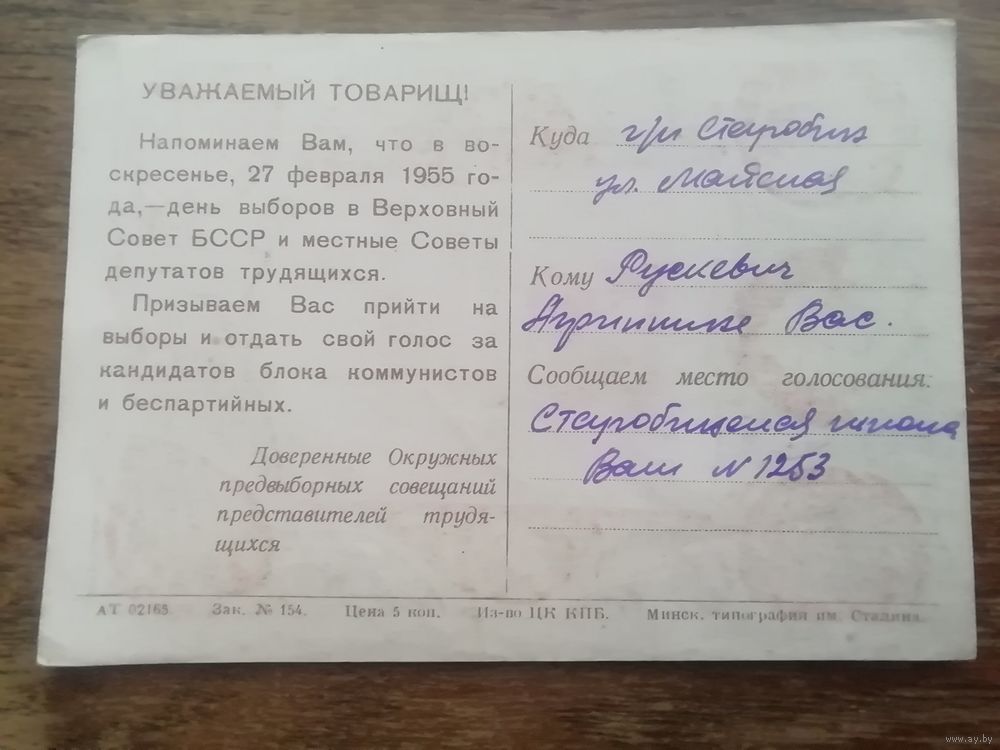 УВАЖАЕМЫЙ ТОВАРИЩ!
Напоминаем Вам, что в во-
скресенье, 27 февраля 1955 го-
да,—день выборов в Верховный
Совет БССР и местные Советы
депутатов трудящихся.
Призываем Вас прийти на
выборы и отдать свой голос за
кандидатов блока коммунистов
и беспартийных.
Доверенные Окружных
предвыборных совещаний
представителей трудя-
щихся
Куда г/п Старобин
ул. Майская
Кому Рускевич
Вас.
Сообщаем место голосования:
Старобинская школа
Ваш N 1253
АТ 02168. Зак. № 154. Цена 5 коп. Из-во ЦК КПБ. Минск, типография им. Сталина.
www.ay.by